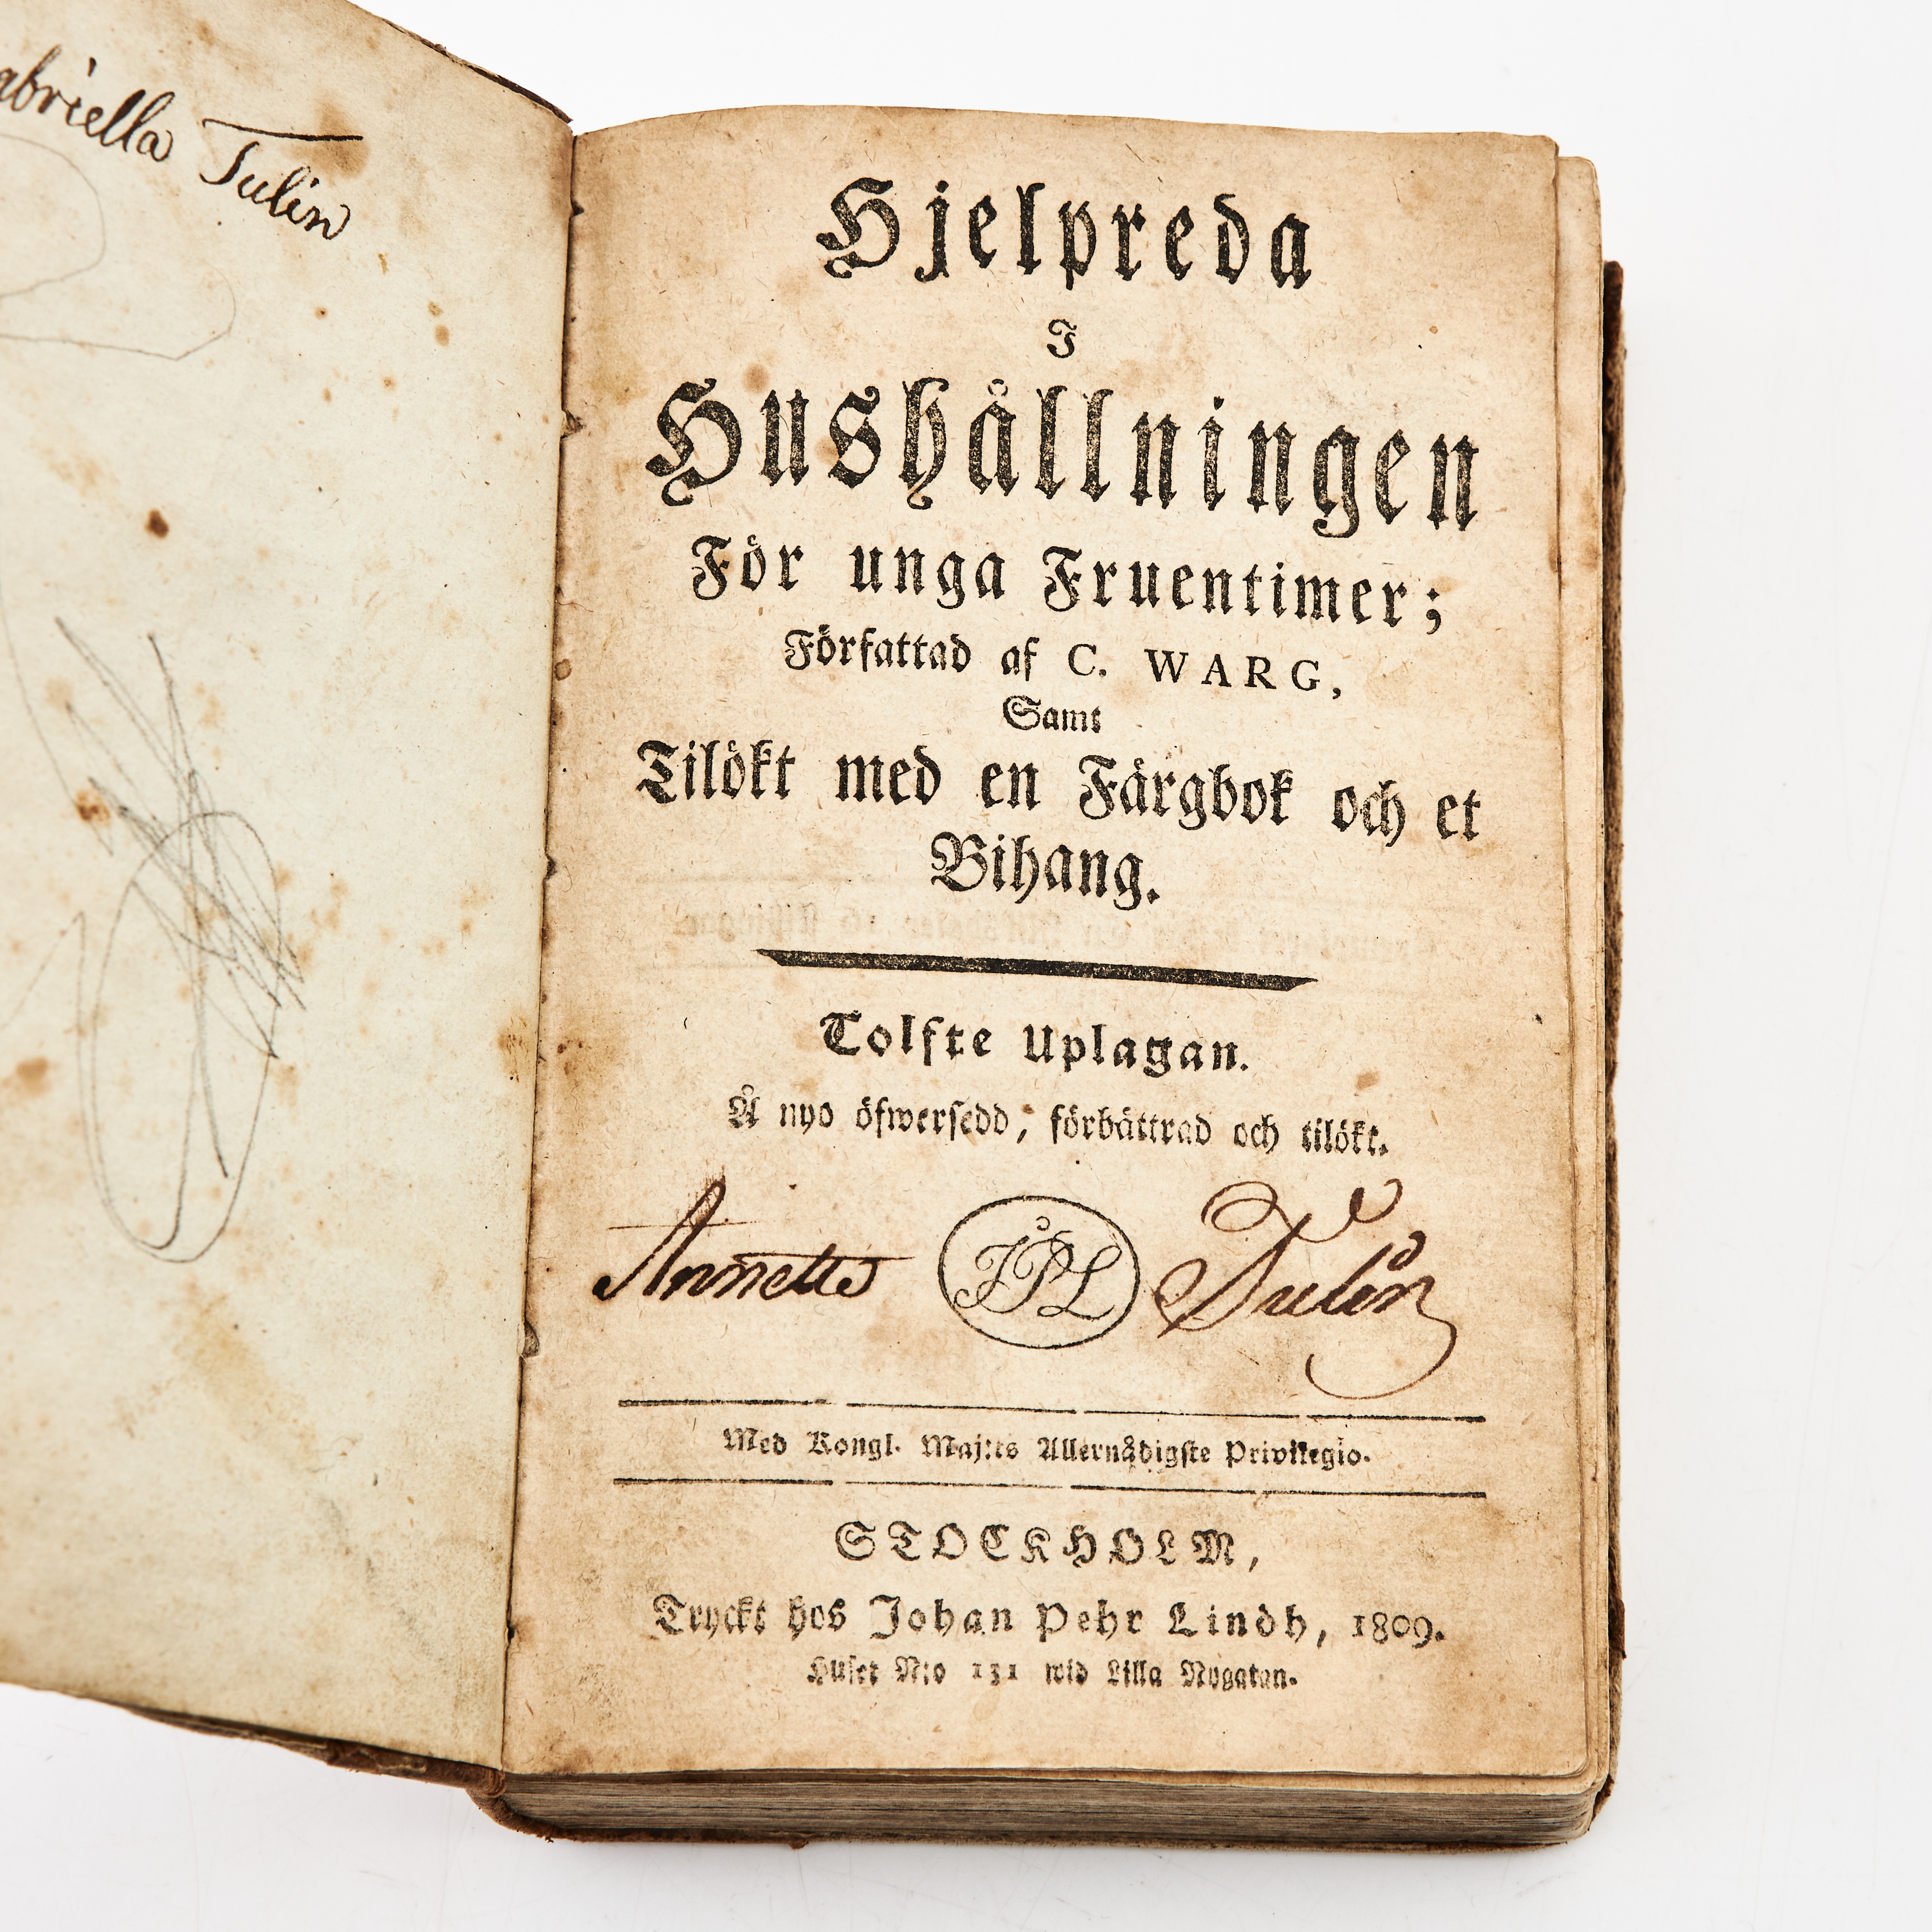 abriella Tulin
Hjelpreda
I
Hushållningen
För unga Fruentimer;
Författad af C. WARG,
Samt
Tilökt med en Färgbok och et
Bihang.
Tolfte Uplagan.
Å nyo öfwersedd, förbättrad och tilökt.
Annette JPL Tulin
Med Kongl. Maj:ts Allernådigste Privilegio.
STOCKHOLM,
Tryckt hos Johan Pehr Lindh, 1809.
Huset N:o 131 wid Lilla Nygatan.